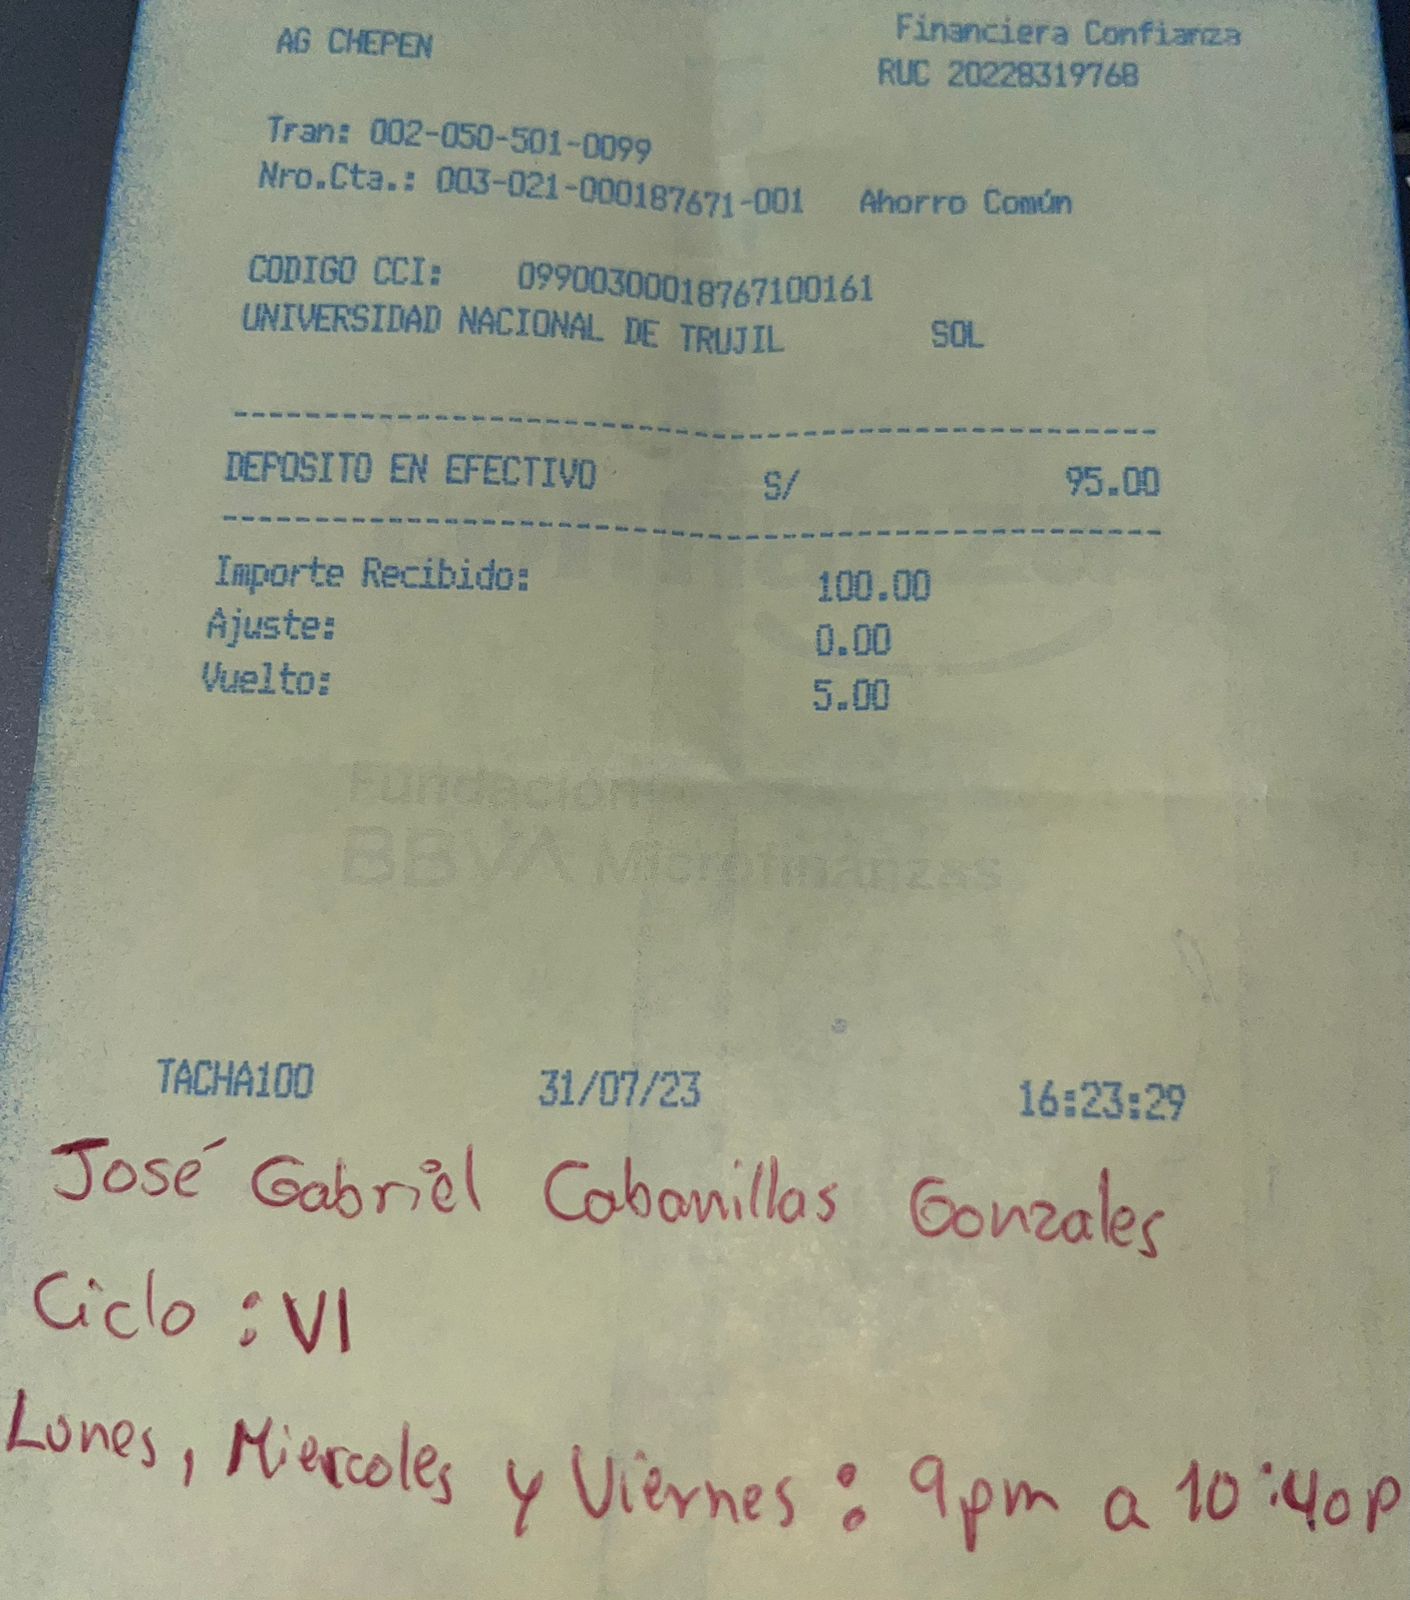 AG CHEPEN Financiera Confianza
RUC 20228319768
Tran: 002-050-501-0099
Nro.Cta.: 003-021-000187671-001 Ahorro Común
CODIGO CCI: 09900300018767100161
UNIVERSIDAD NACIONAL DE TRUJIL SOL
DEPOSITO EN EFECTIVO S/ 95.00
Importe Recibido: 100.00
Ajuste: 0.00
Vuelto: 5.00
Fundación
BBVA Microfinanzas
TACHA100 31/07/23 16:23:29
José Gabriel Cabanillas Gonzales
Ciclo : VI
Lunes, Miercoles y Viernes : 9pm a 10:40p